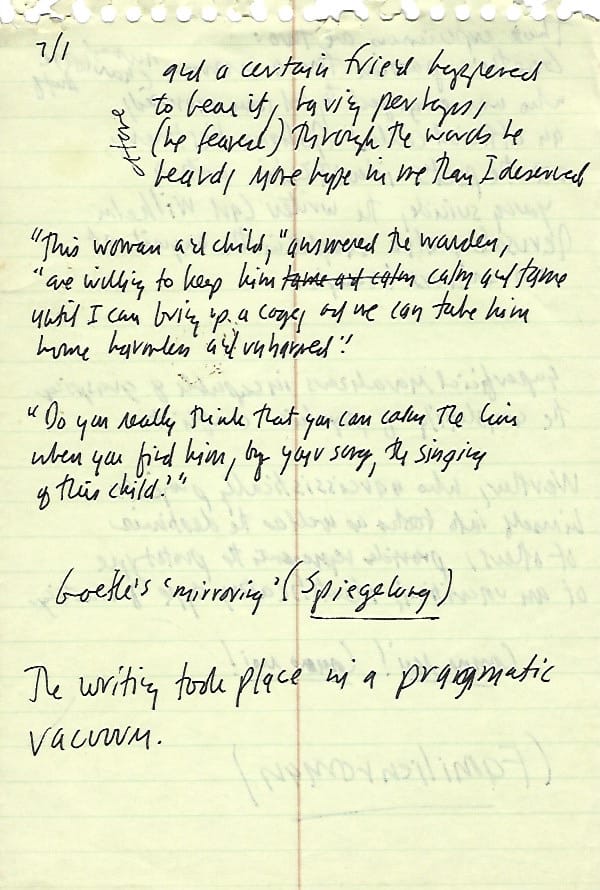 7/1
and a certain friend happened
to hear it, having perhaps,
(he feared) through the words he
heard, more hope in me than I deserved
"This woman and child," answered the warden,
"are willing to keep him tame and calm calm and tame
until I can bring up a cage, and we can take him
home harmless and unharmed"!
"Do you really think that you can calm the lion
when you find him, by your song, the singing
of this child?"
Goethe's 'mirroring' (Spiegelung)
The writing took place in a pragmatic
vacuum.